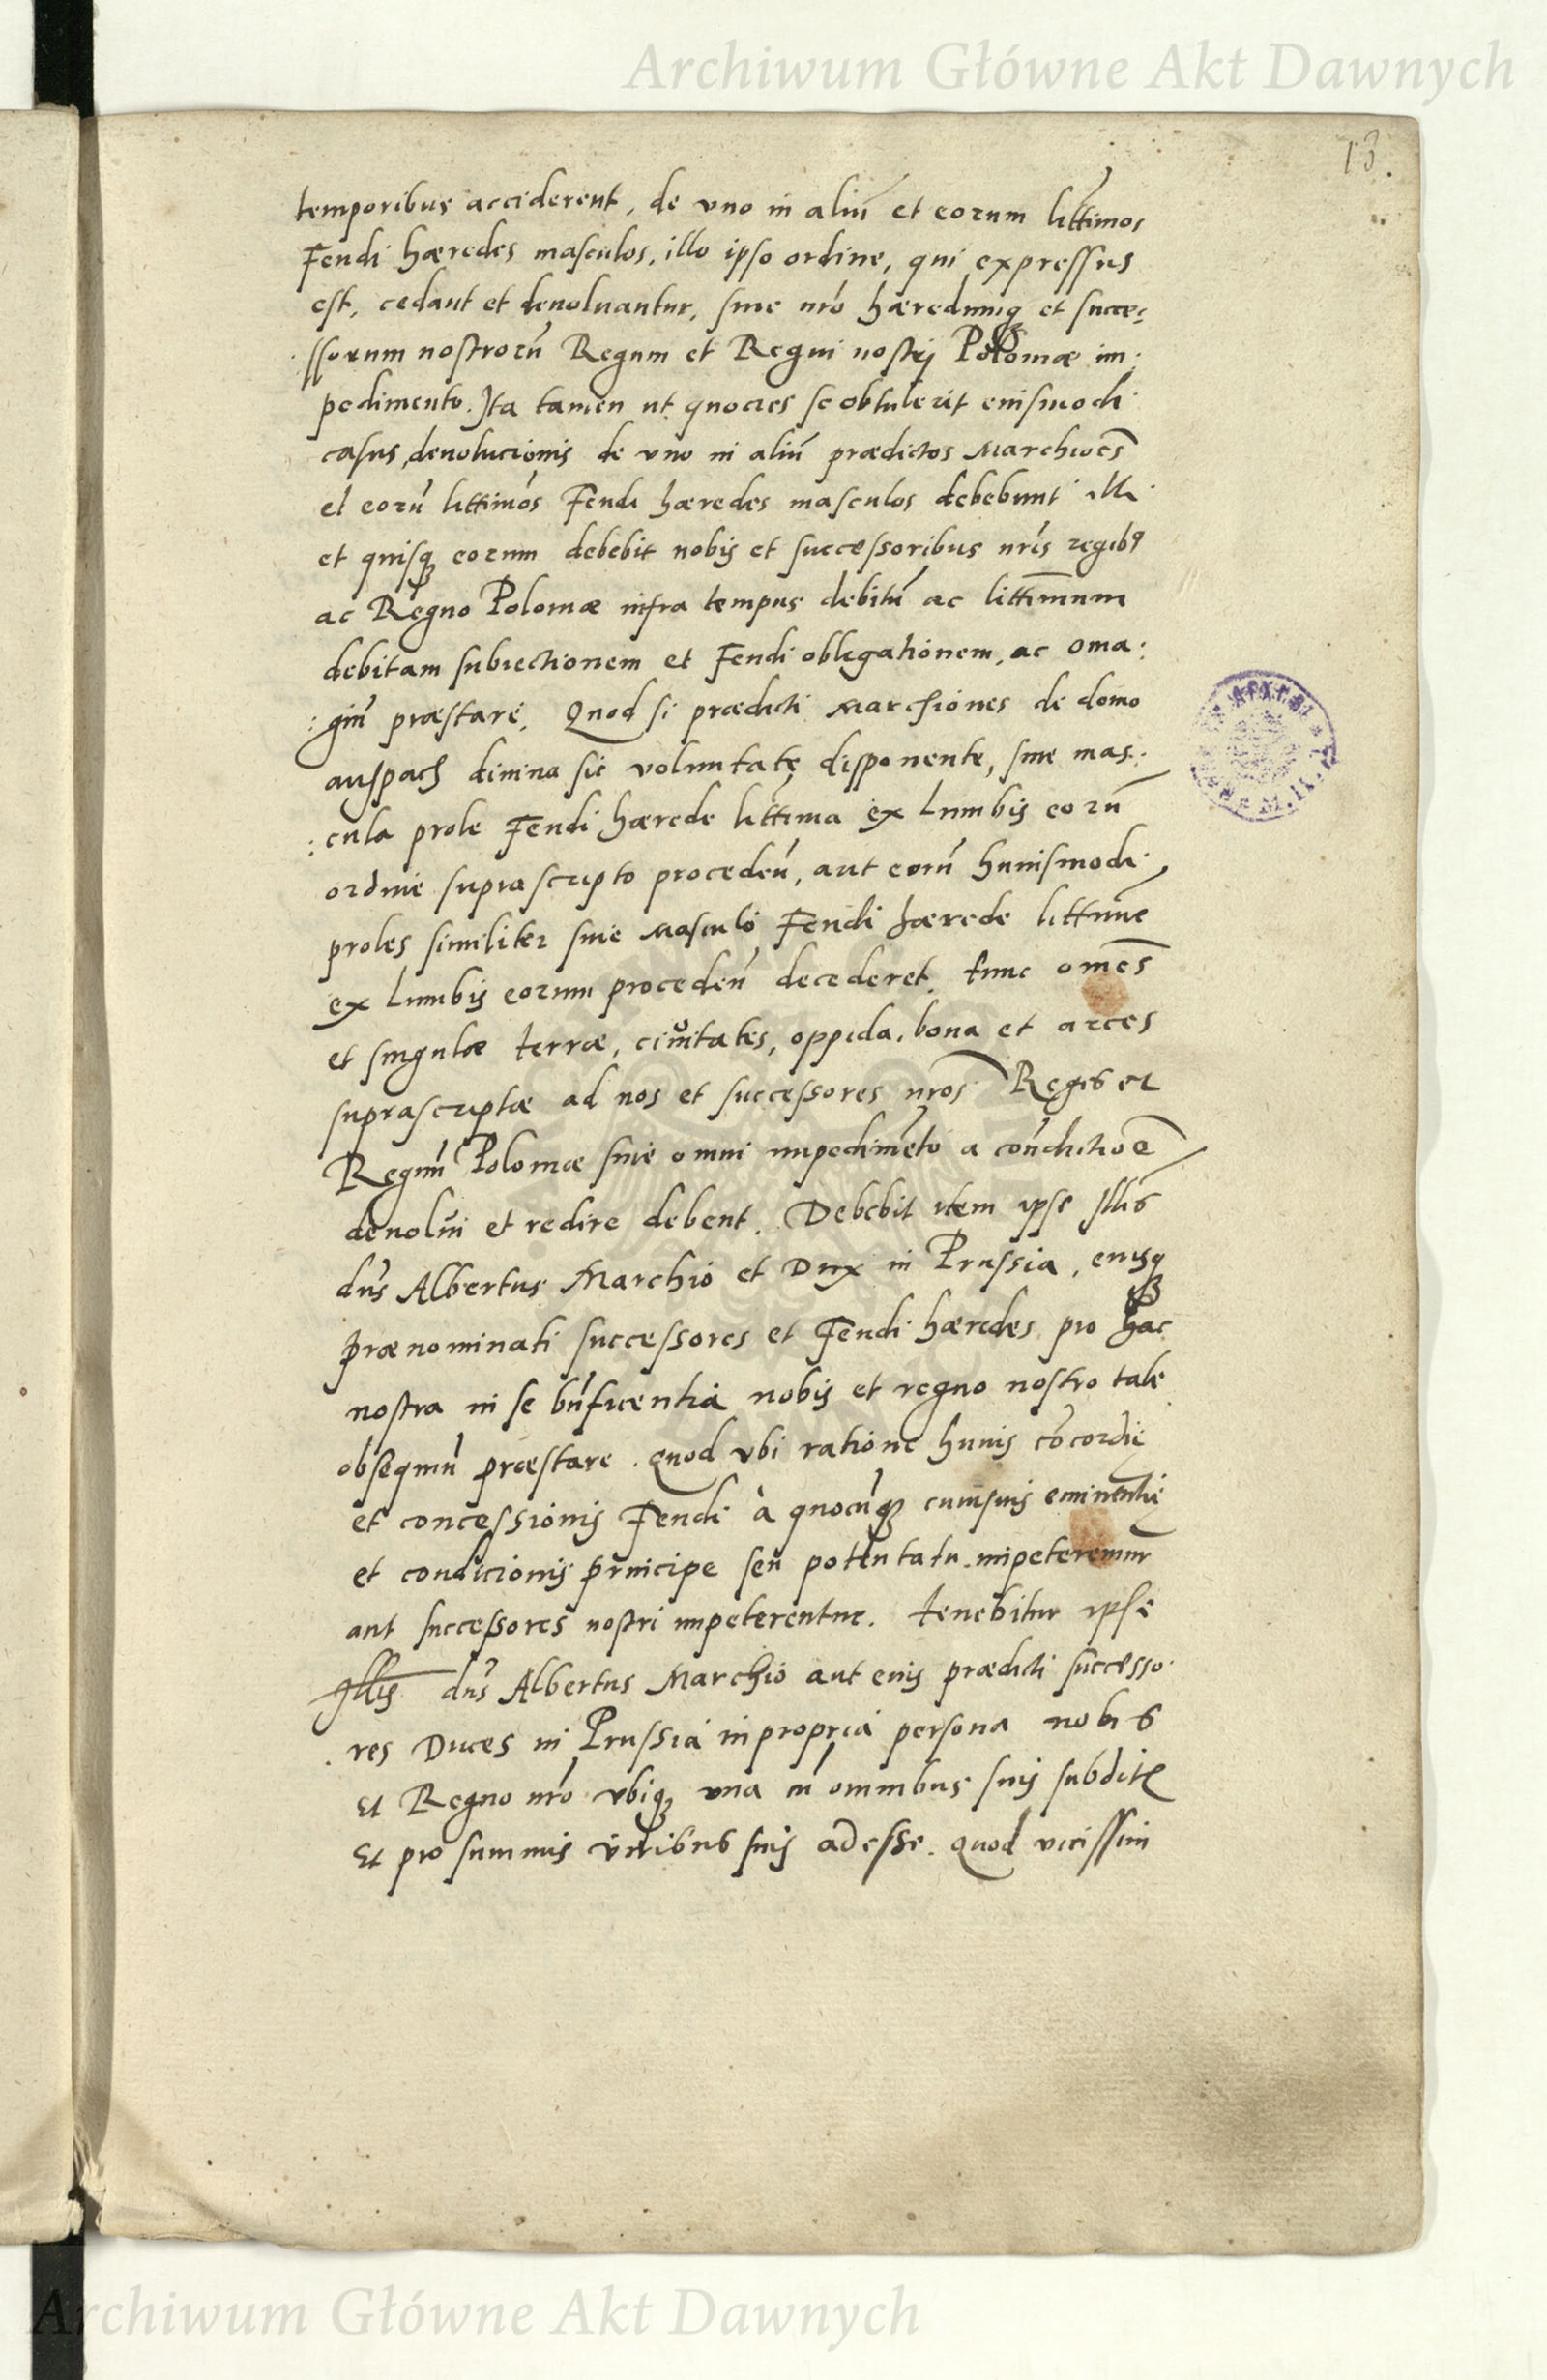 Archiwum Główne Akt Dawnych
13.
temporibus acciderent, de uno in aliū et eorum littimos
Feudi hæredes masculos, illo ipso ordine, qui expressus
est, cedant et devolvantur, sine nrō hæredumq et succe:
ssorum nostrorū Regum et Regni nostrj Poloniæ im:
pedimento. Ita tamen ut quocies se obtulerit eiusmodi
casus, devolucionis de vno in aliū prædictos Marchioēs
et eorū littimōs Feudi hæredes masculos debebunt illi
et quisq eorum debebit nobis et successoribus nrīs regibq
ac Regno Poloniæ infra tempus debitū ac littimum
debitam subiectionem et Feudi obligationem, ac oma:
:giū præstare. Quod si prædicti Marchiones de domo
anspach divina sic voluntate disponente, sine mas:
:cula prole Feudi hærede littima ex Lumbis eorū
ordine suprascripto procedeñ, aut eorū huiusmodi
proles similiter sine Masculo Feudi hærede littimē
ex Lumbis eorum procedeñ decederet, tunc omēs
et singulæ terræ, civitates, oppida, bona et arces
suprascriptæ ad nos et successores nrōs Reges et
Regnū Poloniæ sine omni impedimēto a coñdictioē
devolvi et redire debent. Debebit item ipse Illis
dn̄s Albertus Marchio et Dux in Prussia, eiusq
prænominati successores et Feudi hæredes pro hac
nostra in se bn̄ficentia nobis et regno nostro tale
obsequiū præstare. Quod vbi ratione huius cōcordię
et concessionis Feudi à quocūq cuiusuis eminentię
et condicionis principe seu potentatu impeteremur
aut successores nostri impeterentur. tenebitur ipse
Illis dn̄s Albertus Marchio aut eius prædicti successo
res Duces in Prussia in propria persona nobis
Et Regno nrō vbiq una cū omnibus suis subditis
Et pro summis viribus suis adesse. Quod vicissim
Archiwum Główne Akt Dawnych